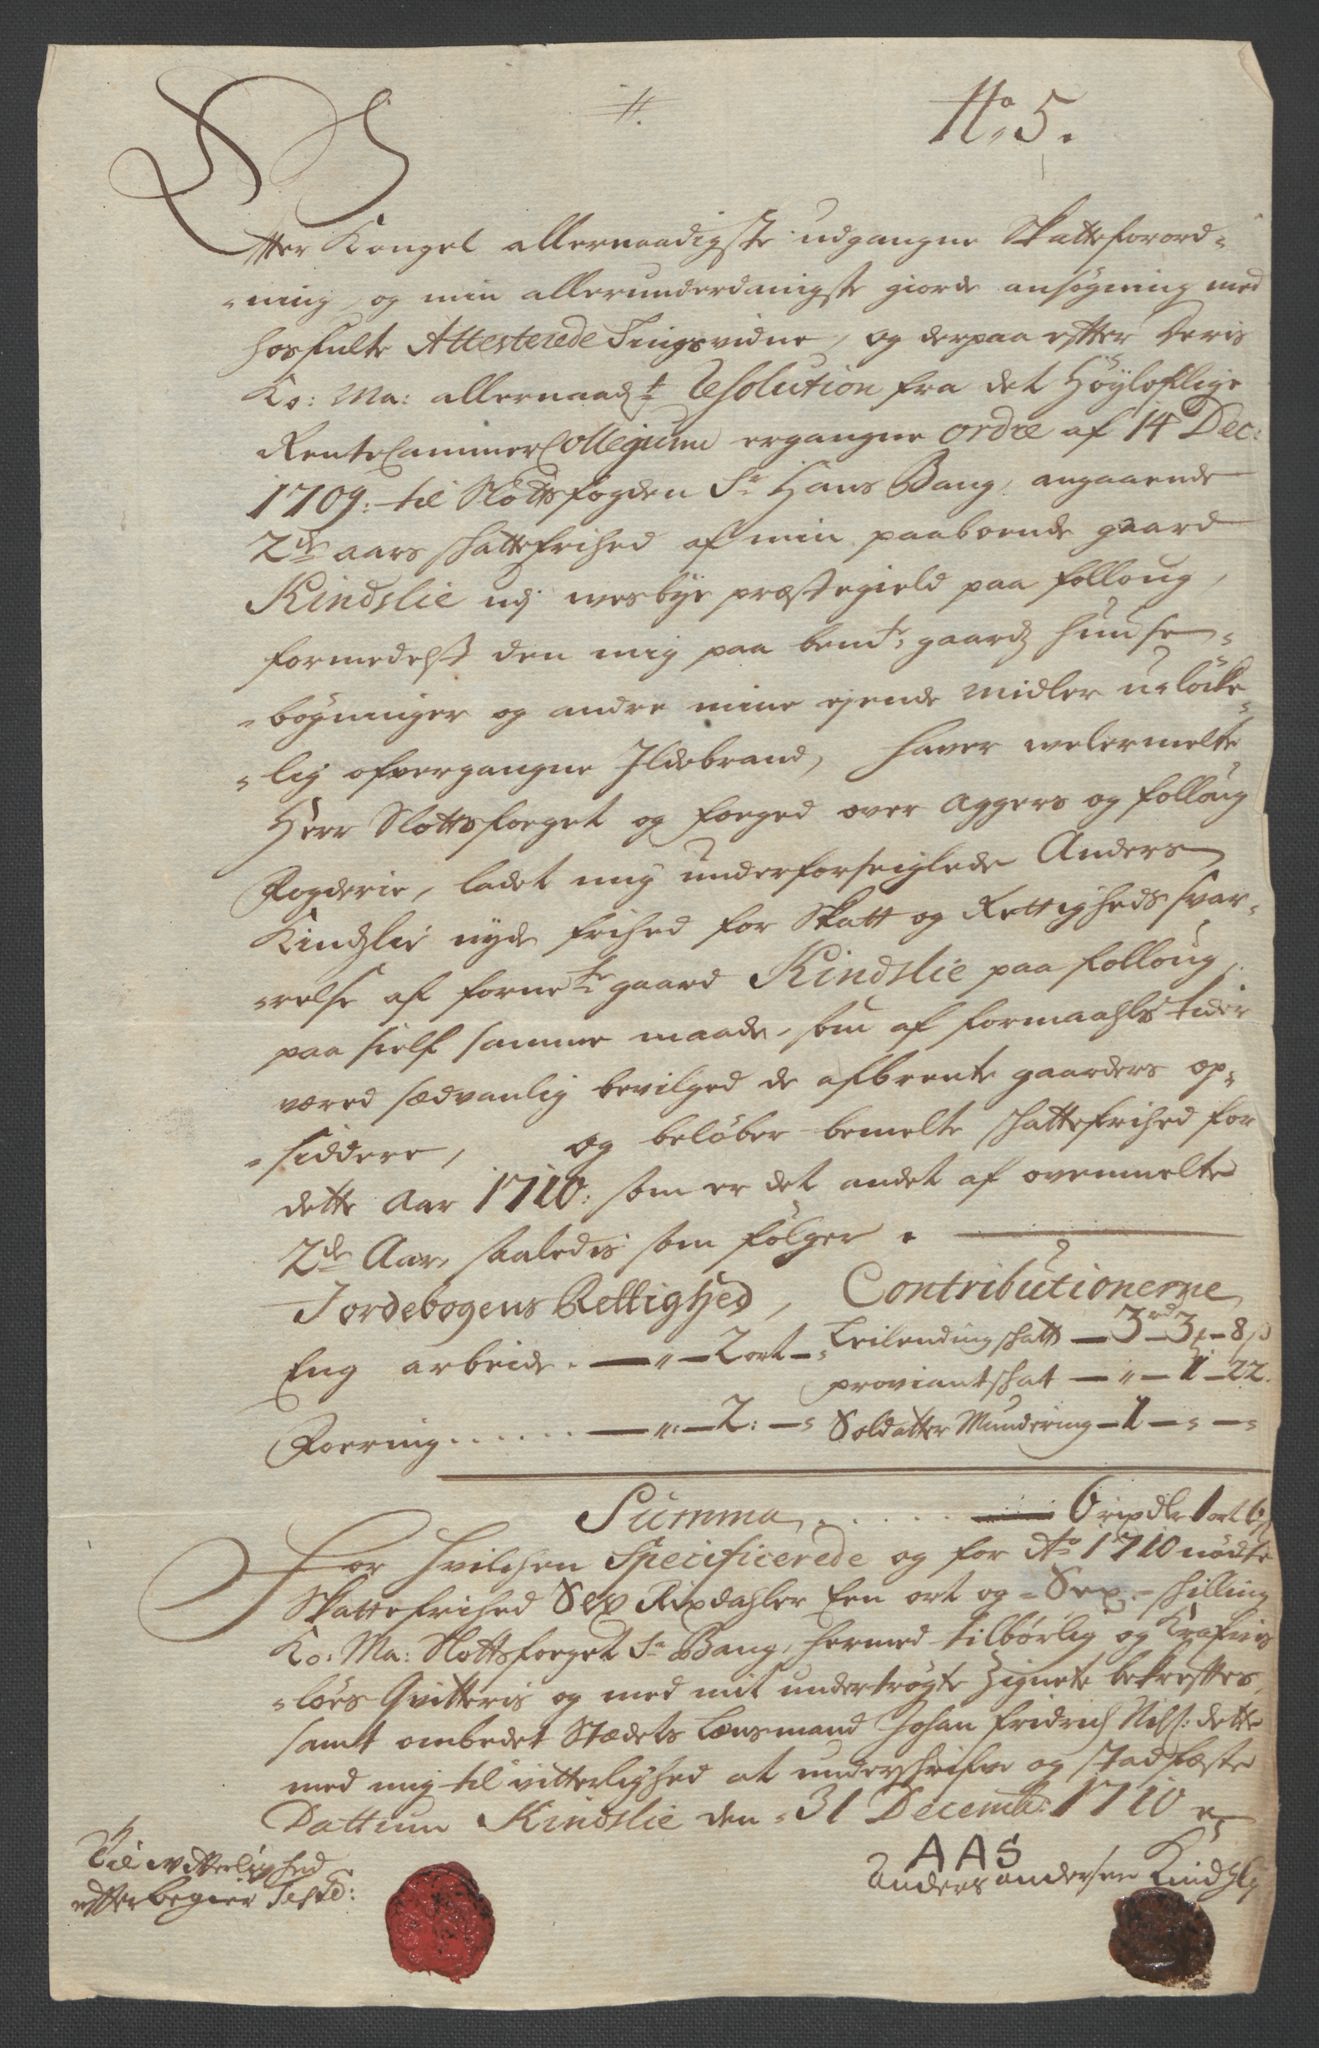 No. 5.
Efter Kongel allernaadigste udgangne Skatteforord-
-ning, og min allerunderdanigste giorde ansøgning med
hosfulte Attesterede Tingsvidne, og derpaa efter Deris
Ko: Ma: allernaadst Resolution fra det Høyloflige
RenteCammerCollegium ergangne ordre af 14 Dec:
1709: til Slottsfogden Sr Hans Bang, angaaende
2de aars skattefrihed af min paaboende gaard
Kindslie udj nesbye præstegield paa folloug,
formedelst den mig paa bemte gaardz huuse-
-bøgninger og andre mine ejende midler u-løcke-
-lig ofvergangne Ildebrand, haver welermelte
Herr Slottsfoeget og foeged over Aggers og folloug
Fogderie, ladet mig underforseiglede Anders
Kindzlie nyde frihed for Skatt og Rettigheds svar-
-relse af fornete gaard Kindslie paa folloug,
paa sielf samme maade, som af formaahls tider
været sædvanlig bevilged de afbrente gaarders op-
-siddere, og beløber bemelte skattefrihed for
dette Aar 1710: som er det andet af ovenmelte
2de Aar, saaledis som følger.
Jordebogens Rettighed, Contributionerne
Eng arbeide. — " — 2 ort — " Leilendingskatt — 3 rd — 3 — 8 s
proviantskat — " — 1 — 22.
Foering . . . . . . — " : — 2 : — " Soldatter Mundering — 1 — " — "
Summa . . . . . . 6 rixdlr 1 ort 6 s
For hvilchen Specificerede og for Ao 1710 nødte
Skattefrihed Sex Rixdahler Een ort og - Sex - skilling
Ko: Ma: Slottsfoeget Sr Bang, hermed tilbørlig og Krafvis
-løes Qvitteris og med mit undertrøgte Zignete bekreftes,
samt ombedet Stædets Lensmand Johan Fridrich Nilss: dette
med mig til vitterlighed at underskrifve og stadfæste
Dattum Kindslie den 31 Decemb: 1710
AAS
Anders andersen Kindzly
Til witterlighed
efter begier Test: